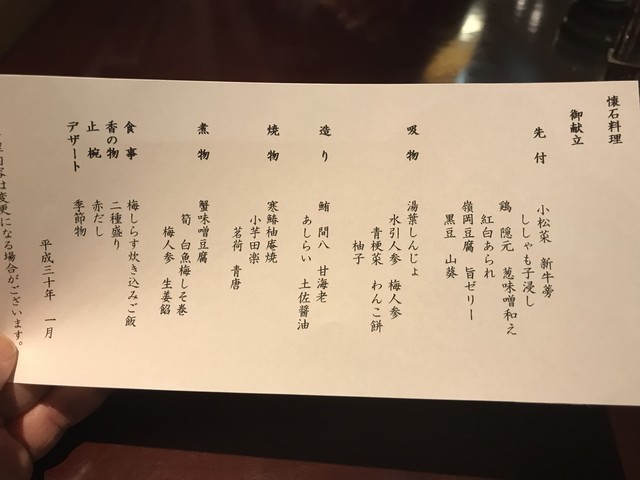 懐石料理
御献立
先付
小松菜 新牛蒡
ししゃも子浸し
鶏 隠元 葱味噌和え
紅白あられ
嶺岡豆腐 旨ゼリー
黒豆 山葵
吸物
湯葉しんじょ
水引人参 梅人参
青梗菜 わんこ餅
柚子
造り
鮪 間八 甘海老
あしらい 土佐醤油
焼物
寒鰆柚庵焼
小芋田楽
茗荷 青唐
煮物
蟹味噌豆腐
筍 白魚梅しそ巻
梅人参 生姜餡
食事
梅しらす炊き込みご飯
香の物
二種盛り
止椀
赤だし
デザート
季節物
平成三十年 一月
内容は変更になる場合がございます。